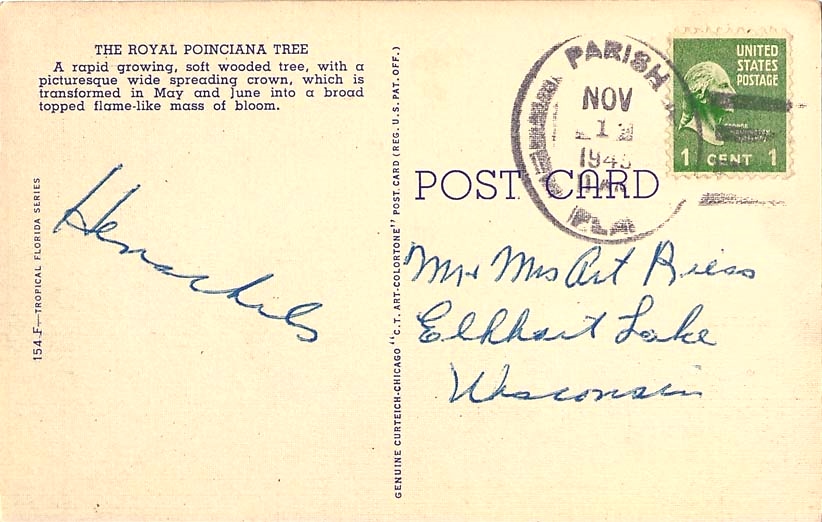 THE ROYAL POINCIANA TREE
A rapid growing, soft wooded tree, with a
picturesque wide spreading crown, which is
transformed in May and June into a broad
topped flame-like mass of bloom.
154-F—TROPICAL FLORIDA SERIES
GENUINE CURTEICH-CHICAGO "C.T. ART-COLORTONE" POST CARD (REG. U.S. PAT. OFF.)
PARISH
NOV
FLA
UNITED
STATES
POSTAGE
1 CENT 1
POST CARD
Mr Mrs Art
Elkhart Lake
Wisconsin